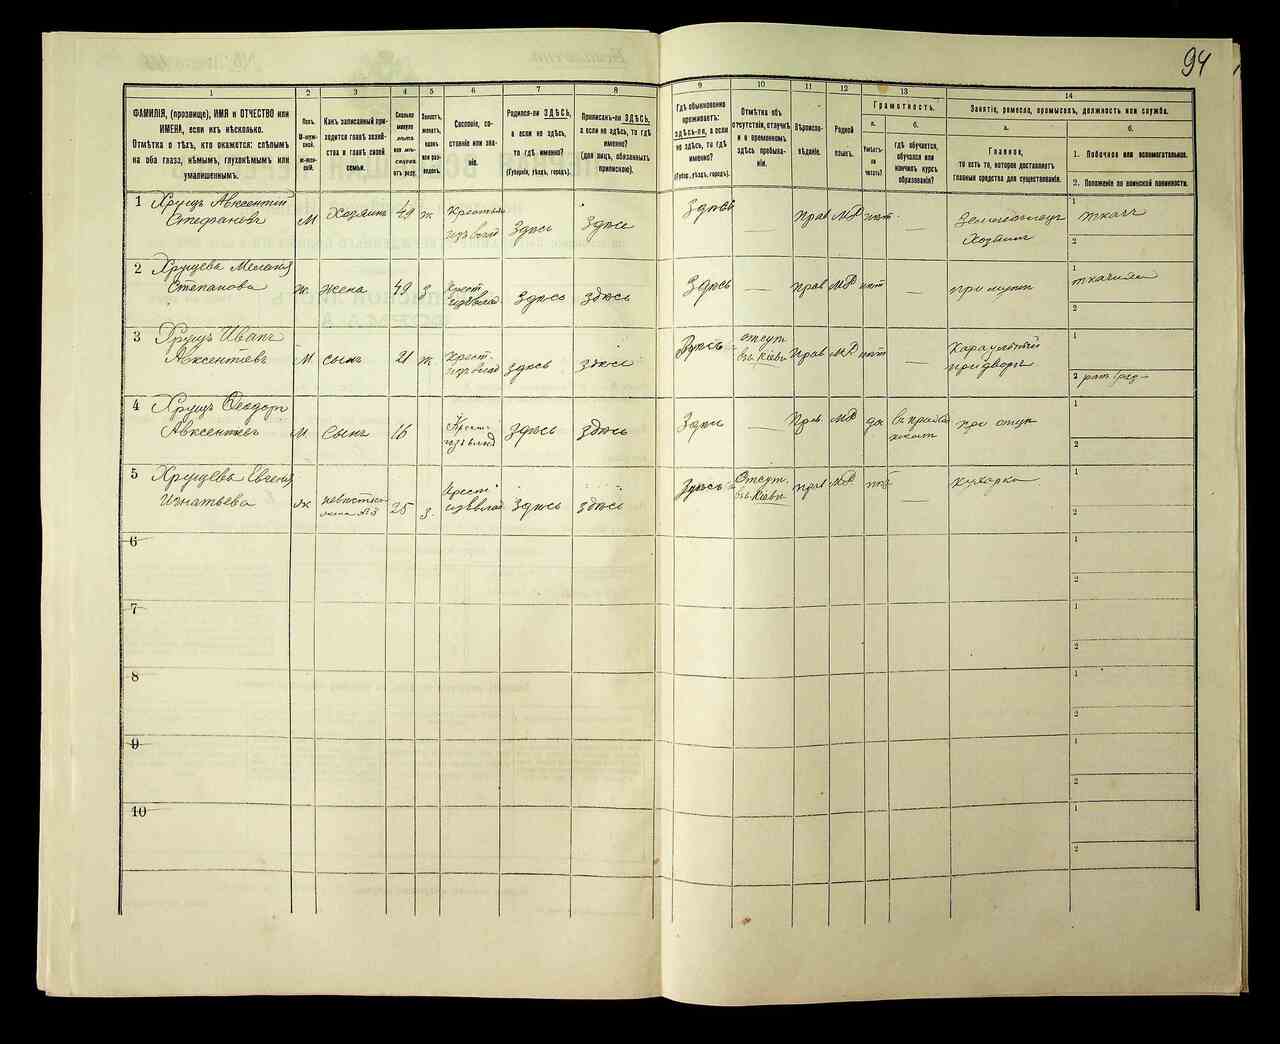 94
1
2
3
4
5
6
7
8
9
10
11
12
13
14
ФАМИЛІЯ, (прозвище), ИМЯ и ОТЧЕСТВО или
ИМЕНА, если ихъ нѣсколько.
Отмѣтка о тѣхъ, кто окажется: слѣпымъ
на оба глаза, нѣмымъ, глухонѣмымъ или
умалишеннымъ.
Полъ.
М-муж-
ской.
Ж-жен-
скій.
Какъ записанный при-
ходится главѣ хозяй-
ства и главѣ своей
семьи.
Сколько
минуло
лѣтъ
или мѣ-
сяцевъ
отъ роду.
Холостъ,
женатъ,
вдовъ
или раз-
веденъ.
Сословіе, со-
стояніе или зва-
ніе.
Родился-ли ЗДѢСЬ,
а если не здѣсь,
то гдѣ именно?
(Губернія, уѣздъ, городъ).
Приписанъ-ли ЗДѢСЬ,
а если не здѣсь, то гдѣ
именно?
(для лицъ, обязанныхъ
припискою).
Гдѣ обыкновенно
проживаетъ:
ЗДѢСЬ-ЛИ, а если
не здѣсь, то гдѣ
именно?
(Губер., уѣздъ, городъ).
Отмѣтка объ
отсутствіи, отлучкѣ
и о временномъ
здѣсь пребыва-
ніи.
Вѣроиспо-
вѣданіе.
Родной
языкъ.
Грамотность.
а.
б.
Умѣетъ-
ли
читать?
гдѣ обучается,
обучался или
кончилъ курсъ
образованія?
Занятіе, ремесло, промыселъ, должность или служба.
а.
б.
Главное,
то есть то, которое доставляетъ
главныя средства для существованія.
1. Побочное или вспомогательное.
2. Положеніе по воинской повинности.
1 Хрущъ Авксентій
Стефановъ
М Хозяинъ 49 ж Крестьян
изъ влад Здѣсь Здѣсь Здѣсь — Прав МР нѣт — Земледѣлец
Хозяин
1 ткачъ
2
2 Хрущева Меланія
Степанова
ж. жена 49 З Крест
изъ влад Здѣсь здѣсь Здѣсь — прав МР нѣт при мужѣ
1
2
3 Хрущъ Иванъ
Авксентіевъ
М сынъ 21 ж. Крест.
изъ влад здѣсь здѣсь Здѣсь отсут
въ Кіевъ Прав МР нѣт Караульный
при дворѣ.
1
2
4 Хрущъ Ѳеодоръ
Авксентіевъ
М Сынъ 16 Крест
изъ влад Здѣсь здѣсь Здѣсь — Прав. МР да при отцѣ
1
2
5 Хрущева Евгенія
Игнатьева
ж невѣстка
жена №3 25 З. Крест
изъ влад Здѣсь здѣсь Здѣсь Отсут.
въ Кіевъ прав МР нѣт — Кухарка
1
2
6
1
2
7
1
2
8
1
2
9
1
2
10
1
2